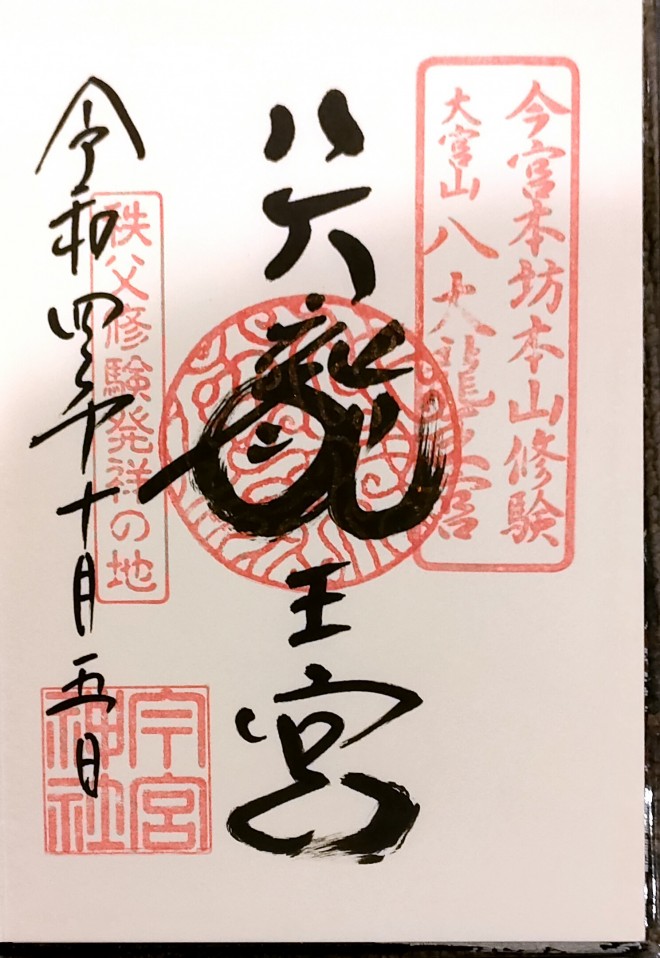 今宮本坊本山修験
大宮山 八大龍王宮
八大龍王宮
秩父修験発祥の地
令和四年十月五日
今宮神社